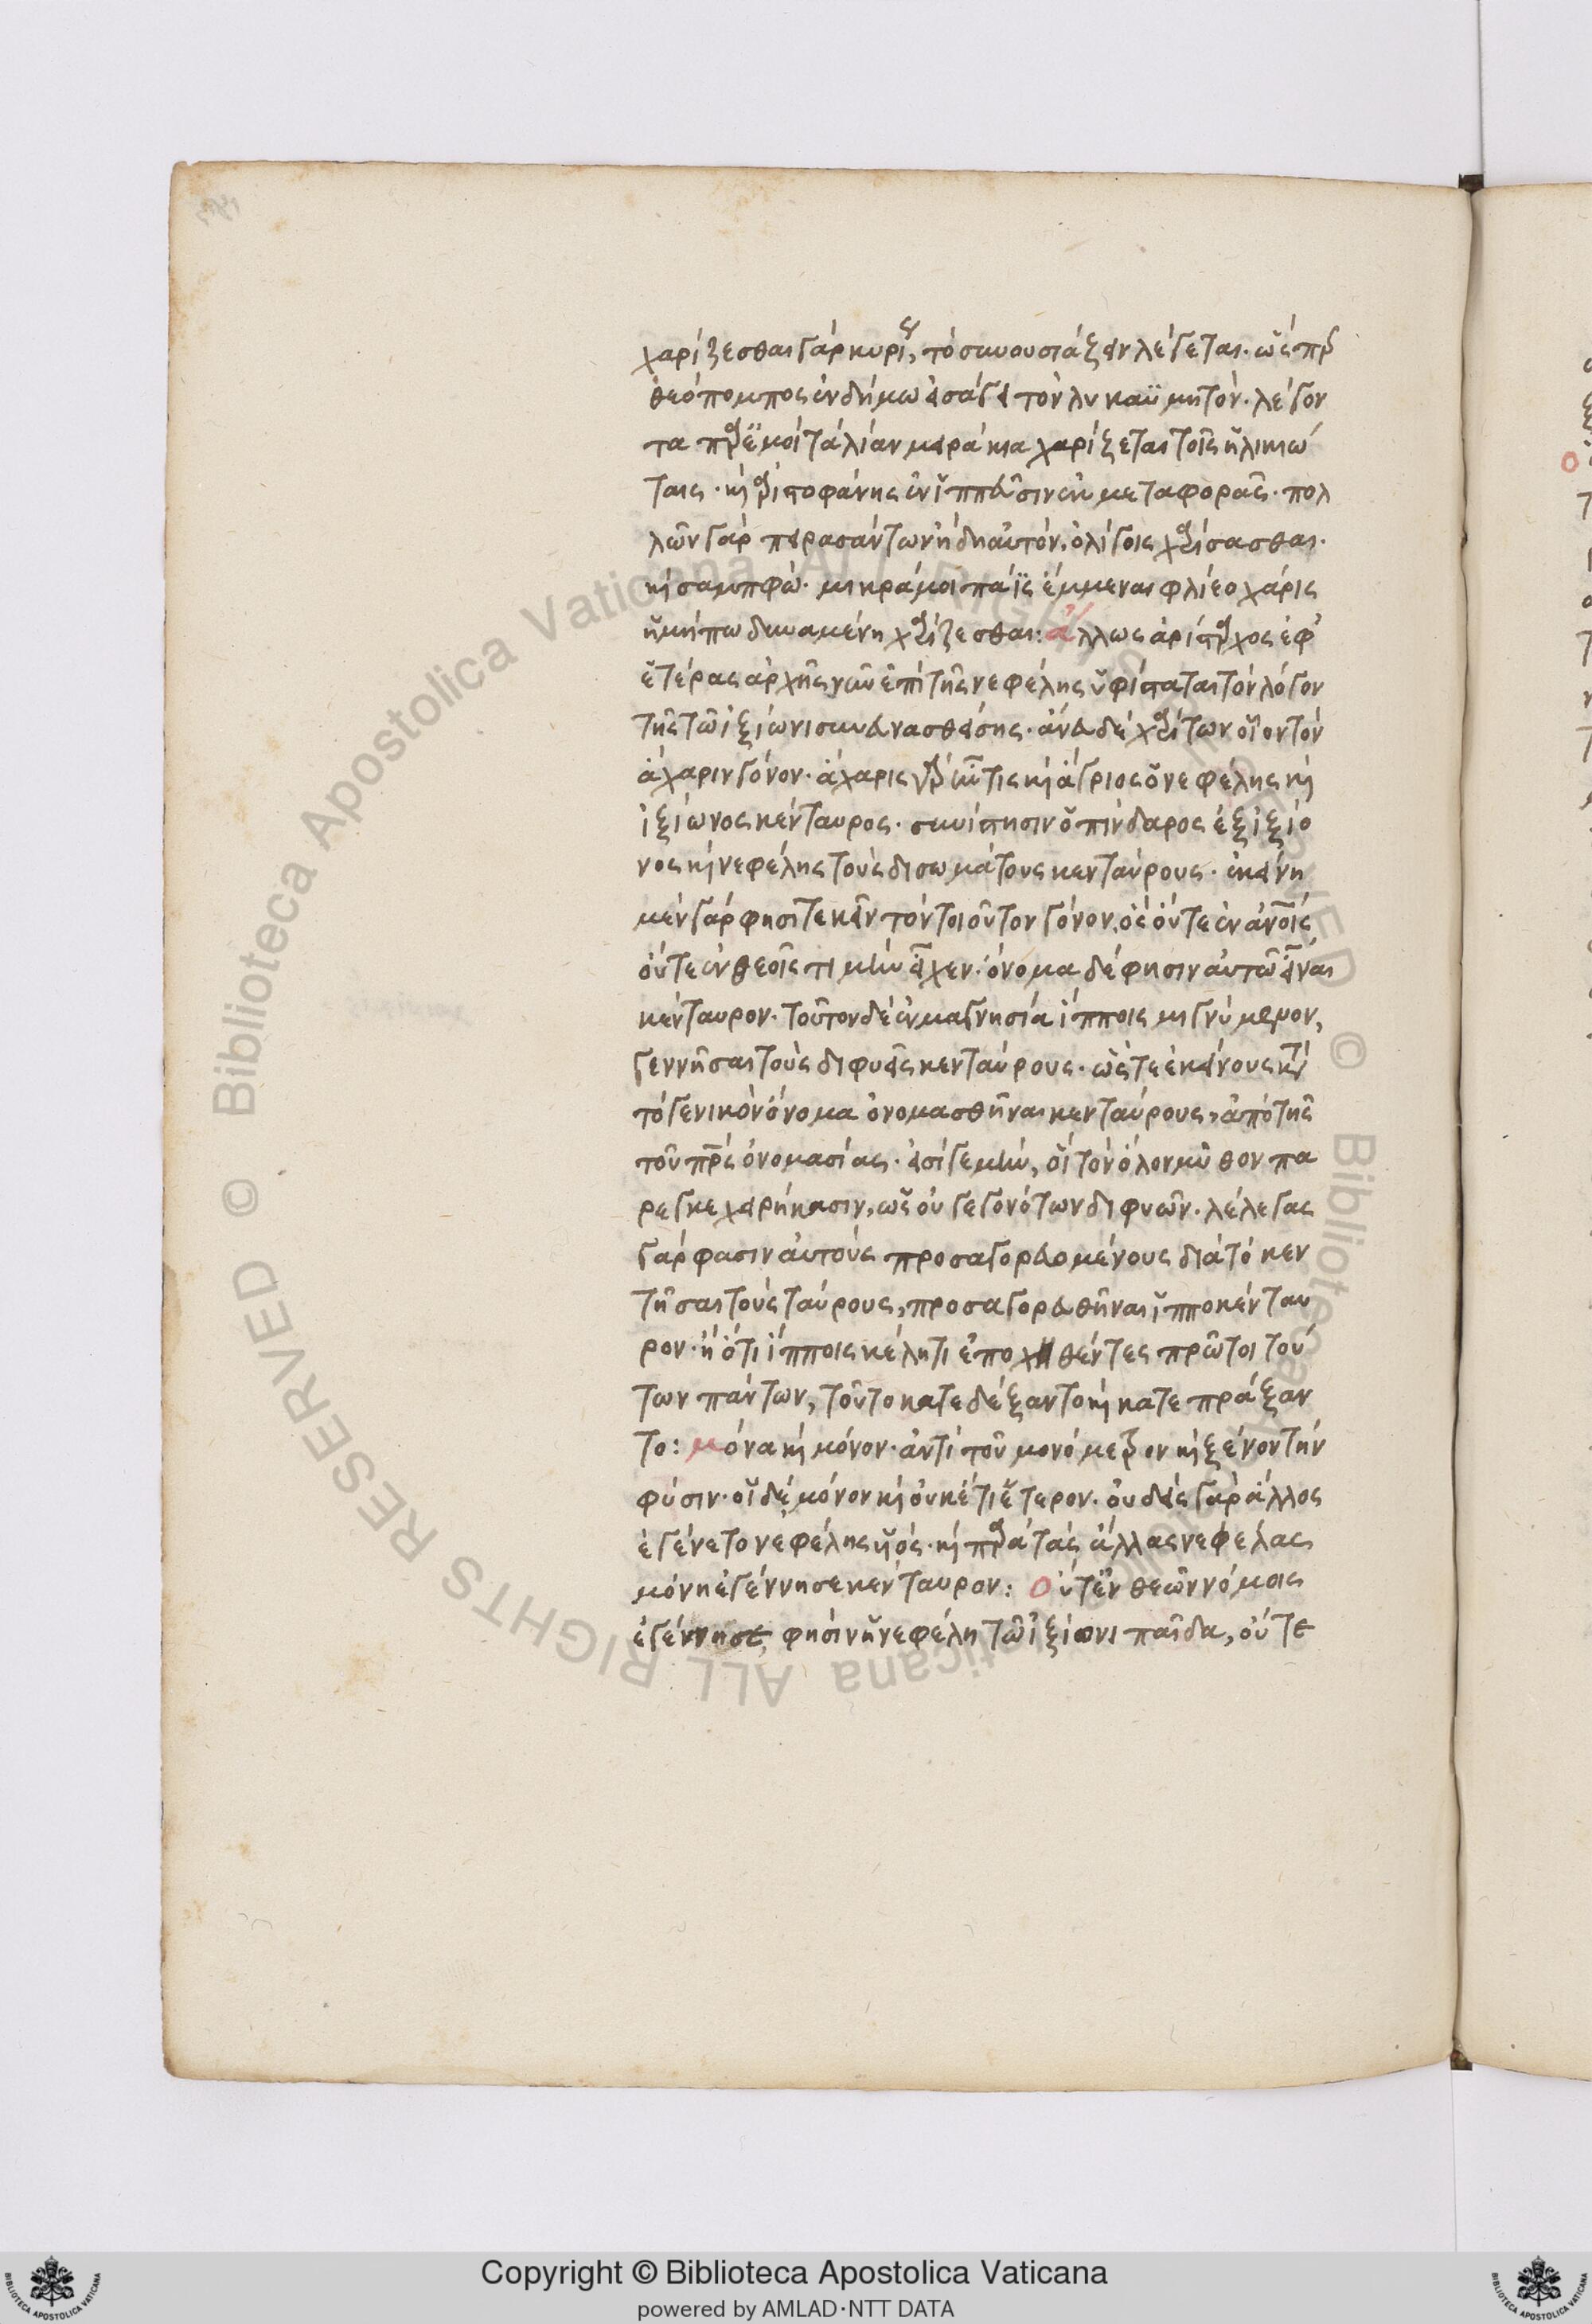 χαρίζεσθαι γάρ κυρίως, τό συνουσιάζειν λέγεται. ὡς πρ
θεόπομπος ἐν δήμω εἰσάγει τόν λυκαϋμητόν. λέγον
τα παρ ἐμοί τἀλίαν μειράκια χαρίζεται τοῖς ἡλικιώ
ταις. κ ἀριστοφάνης ἐν ἱππεῦσιν ἐν μεταφορᾶς. πολ
λῶν γάρ πειρασάντων ἤδη αὐτόν, ὀλίγοις χαρίσασθαι.
κ σαμπφώ. μικρά μοι πάϊς ἔμμεναι φλίεο χάρις
ἡ μήπω δυναμένη χαρίζεσθαι: ἄλλως ἀρίσταρχος ἐφ'
ἑτέρας ἀρχῆς νῦν ἐπί τῆς νεφέλης ὑφίσταται τόν λόγον
τῆς τῶ ἰξίωνι συνευνασθείσης. ἄνευ δέ χαρίτων οἷον τόν
ἄχαριν γόνον. ἄχαρις γάρ ὤν τις κ ἄγριος ὁ νεφέλης κ
ἰξίωνος κένταυρος. συνίστησιν ὁ πίνδαρος ἐξ ἰξίο
νος κ νεφέλης τούς δισωμάτους κενταύρους. ἐκείνη
μέν γάρ φησι τεκεῖν τόν τοιοῦτον γόνον, ὅς οὔτε ἐν ἀνοις
οὔτε ἐν θεοῖς τιμήν εἶχεν. ὄνομα δέ φησιν αὐτῶ εἶναι
κένταυρον. τοῦτον δέ ἐν μαγνησία ἵπποις μιγνύμενον,
γεννῆσαι τούς διφυεῖς κενταύρους. ὥστε ἐκείνους κτ
τό γενικόν ὄνομα ὀνομασθῆναι κενταύρους, ἀπό τῆς
τοῦ πρς ὀνομασίας. εἰσί γε μήν, οἵ τόν ὅλον μῦθον πα
ρεγκεχειρήκασιν, ὡς οὐ γεγονότων διφυῶν. λέλεγας
γάρ φασιν αὐτούς προσαγορευομένους διά τό κεν
τῆσαι τούς ταύρους, προσαγορευθῆναι ἱπποκένταυ
ρον. ἤ ὅτι ἵπποις κέλητι ἐποχηθέντες πρῶτοι τού
των πάντων, τοῦτο κατεδέξαντο κ κατεπράξαν
το: μόνα κ μόνον. ἀντί τοῦ μονόμερον κ ξένον τήν
φύσιν. οἱ δέ μόνον κ οὐκέτι ἕτερον. οὐδείς γάρ ἄλλος
ἐγένετο νεφέλης υἱός. κ παρά τάς ἄλλας νεφέλας
μόνη ἐγέννησε κένταυρον: Οὔτ' ἐν θεῶν νόμοις
ἐγέννησε, φησίν ἡ νεφέλη τῶ ἰξίωνι παῖδα, οὔτε
Copyright © Biblioteca Apostolica Vaticana
powered by AMLAD·NTT DATA